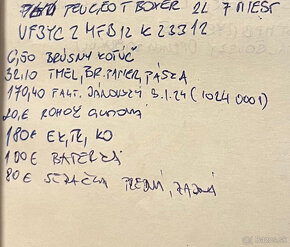 PEUGEOT BOXER 2L 7 MIEST
VF3YCZMFB12K23312
0,50 BRÚSNY KOTÚČ
32,10 TMEL, BR.PAPIER, PÁSKA
170,40 FAKT. JÁNOŠSKÝ 3.1.24 (10240001)
20,€ ROHOŽ
180€ EK, TK, KO
100€ BATERKA
80€ STRAČKA PREDNÁ, ZADNÁ
bazos.sk